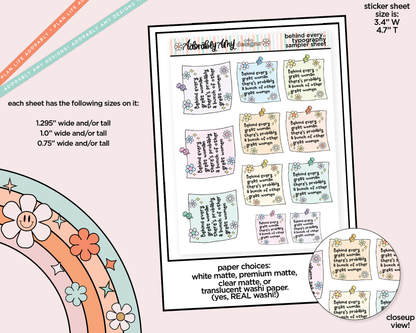 PLAN LIFE ADORABLY • PLAN LIFE ADORABLY
ADORABLY AMY DESIGNS! • ADORABLY AMY DESIGNS
sticker sheet
size is:
3.4" W
4.7" T
each sheet has the following sizes on it:
1.295" wide and/or tall
1.0" wide and/or tall
0.75" wide and/or tall
Adorably Amy
behind every...
typography
sampler sheet
Behind every
great woman
there's probably
a bunch of other
great women
Behind every
great woman
there's probably
a bunch of other
great women
Behind every
great woman
there's probably
a bunch of other
great women
Behind every
great woman
there's probably
a bunch of other
great women
Behind every
great woman
there's probably
a bunch of other
great women
Behind every
great woman
there's probably
a bunch of other
great women
Behind every
great woman
there's probably
a bunch of other
great women
Behind every
great woman
there's probably
a bunch of other
great women
Behind every
great woman
there's probably
a bunch of other
great women
Behind every
great woman
there's probably
a bunch of other
great women
Behind every
great woman
there's probably
a bunch of other
great women
Behind every
great woman
there's probably
a bunch of other
great women
paper choices:
white matte, premium matte,
clear matte, or
translucent washi paper.
(yes, REAL washi!)
Behind every
great woman
there's probably
a bunch of other
great women
closeup
view!